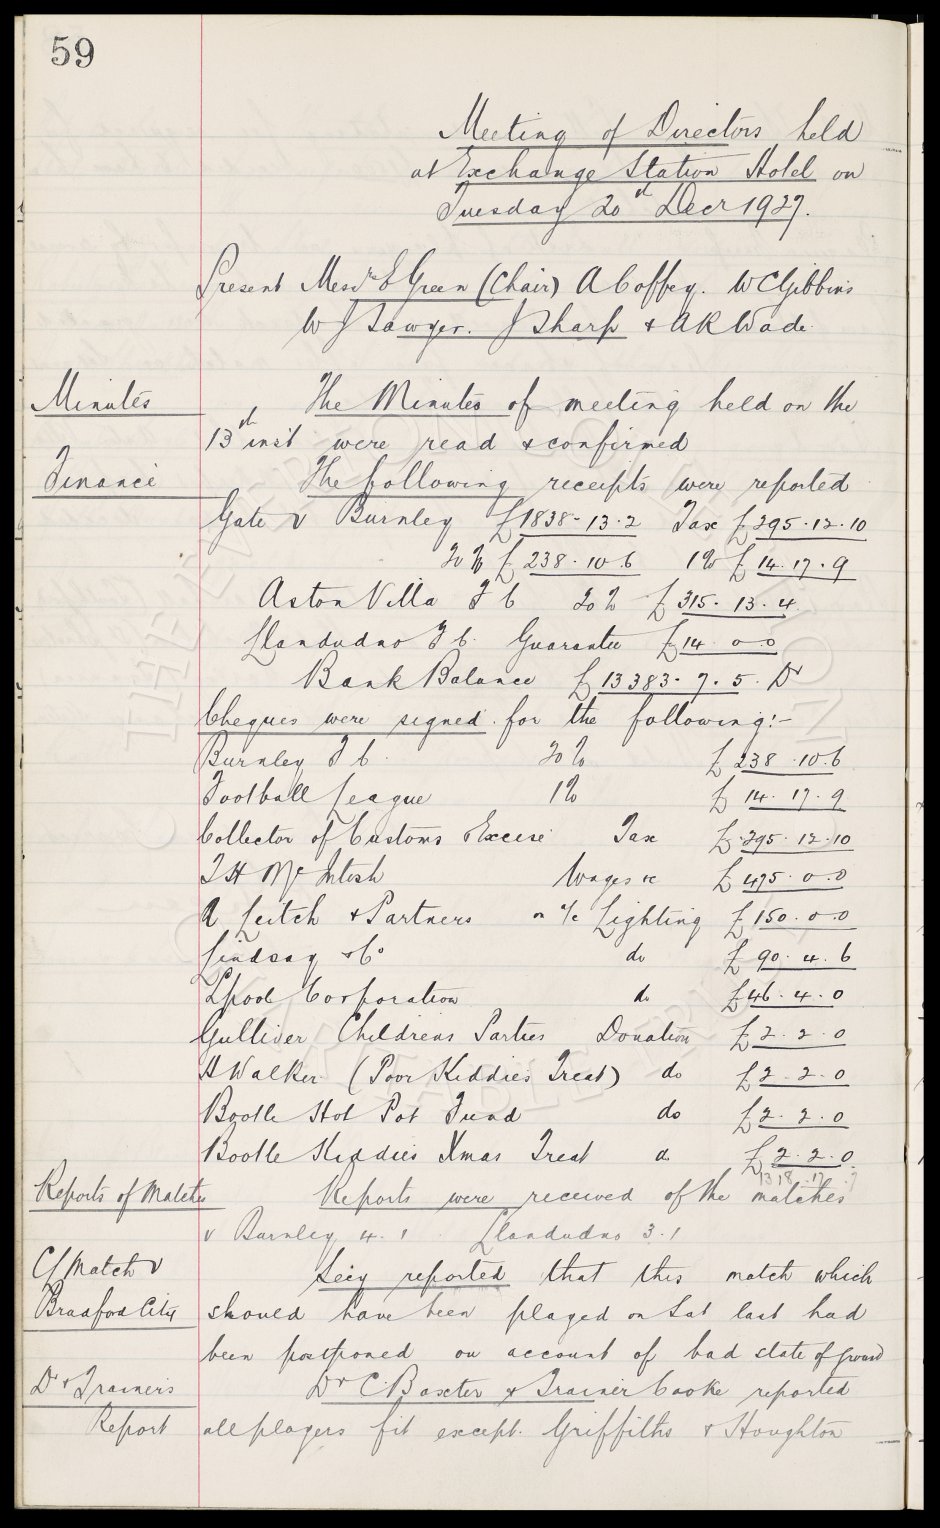 59
Meeting of Directors held
at Exchange Station Hotel on
Tuesday 20th Decr 1927.
Present Messrs E Green (Chair) A Coffey. W C Gibbins
W J Sawyer. J Sharp & A R Wade.
Minutes The Minutes of meeting held on the
13th inst were read & confirmed
Finance The following receipts were reported
Gate v Burnley £1838-13-2 Tax £295-12-10
20% £238-10-6 1% £14-17-9
Aston Villa F C 20% £315-13-4
Llandudno F C. Guarantee £14-0-0
Bank Balance £13383-7-5. Dr
Cheques were signed for the following:-
Burnley F C. 20% £238-10-6
Football League 1% £14-17-9
Collector of Customs Excise Tax £295-12-10
T H McIntosh Wages &c £475-0-0
A Leitch & Partners on a/c Lighting £150-0-0
Lindsay & Co do £90-4-6
Lpool Corporation do £46-4-0
Gulliver Childrens Parties Donation £2-2-0
H Walker (Poor Kiddies Treat) do £2-2-0
Bootle Hot Pot Fund do £2-2-0
Bootle Kiddies Xmas Treat do £2-2-0
1318.17.7
Reports of Matches Reports were received of the matches
v Burnley 4.1 Llandudno 3.1
C/L Match v Secy reported that this match which
Bradford City should have been played on Sat last had
been postponed on account of bad state of ground
Dr & Trainers Dr C. Baxter & Trainer Cooke reported
Report all players fit except. Griffiths & Houghton
THE EVERTON COLLECTION
CHARITABLE TRUST